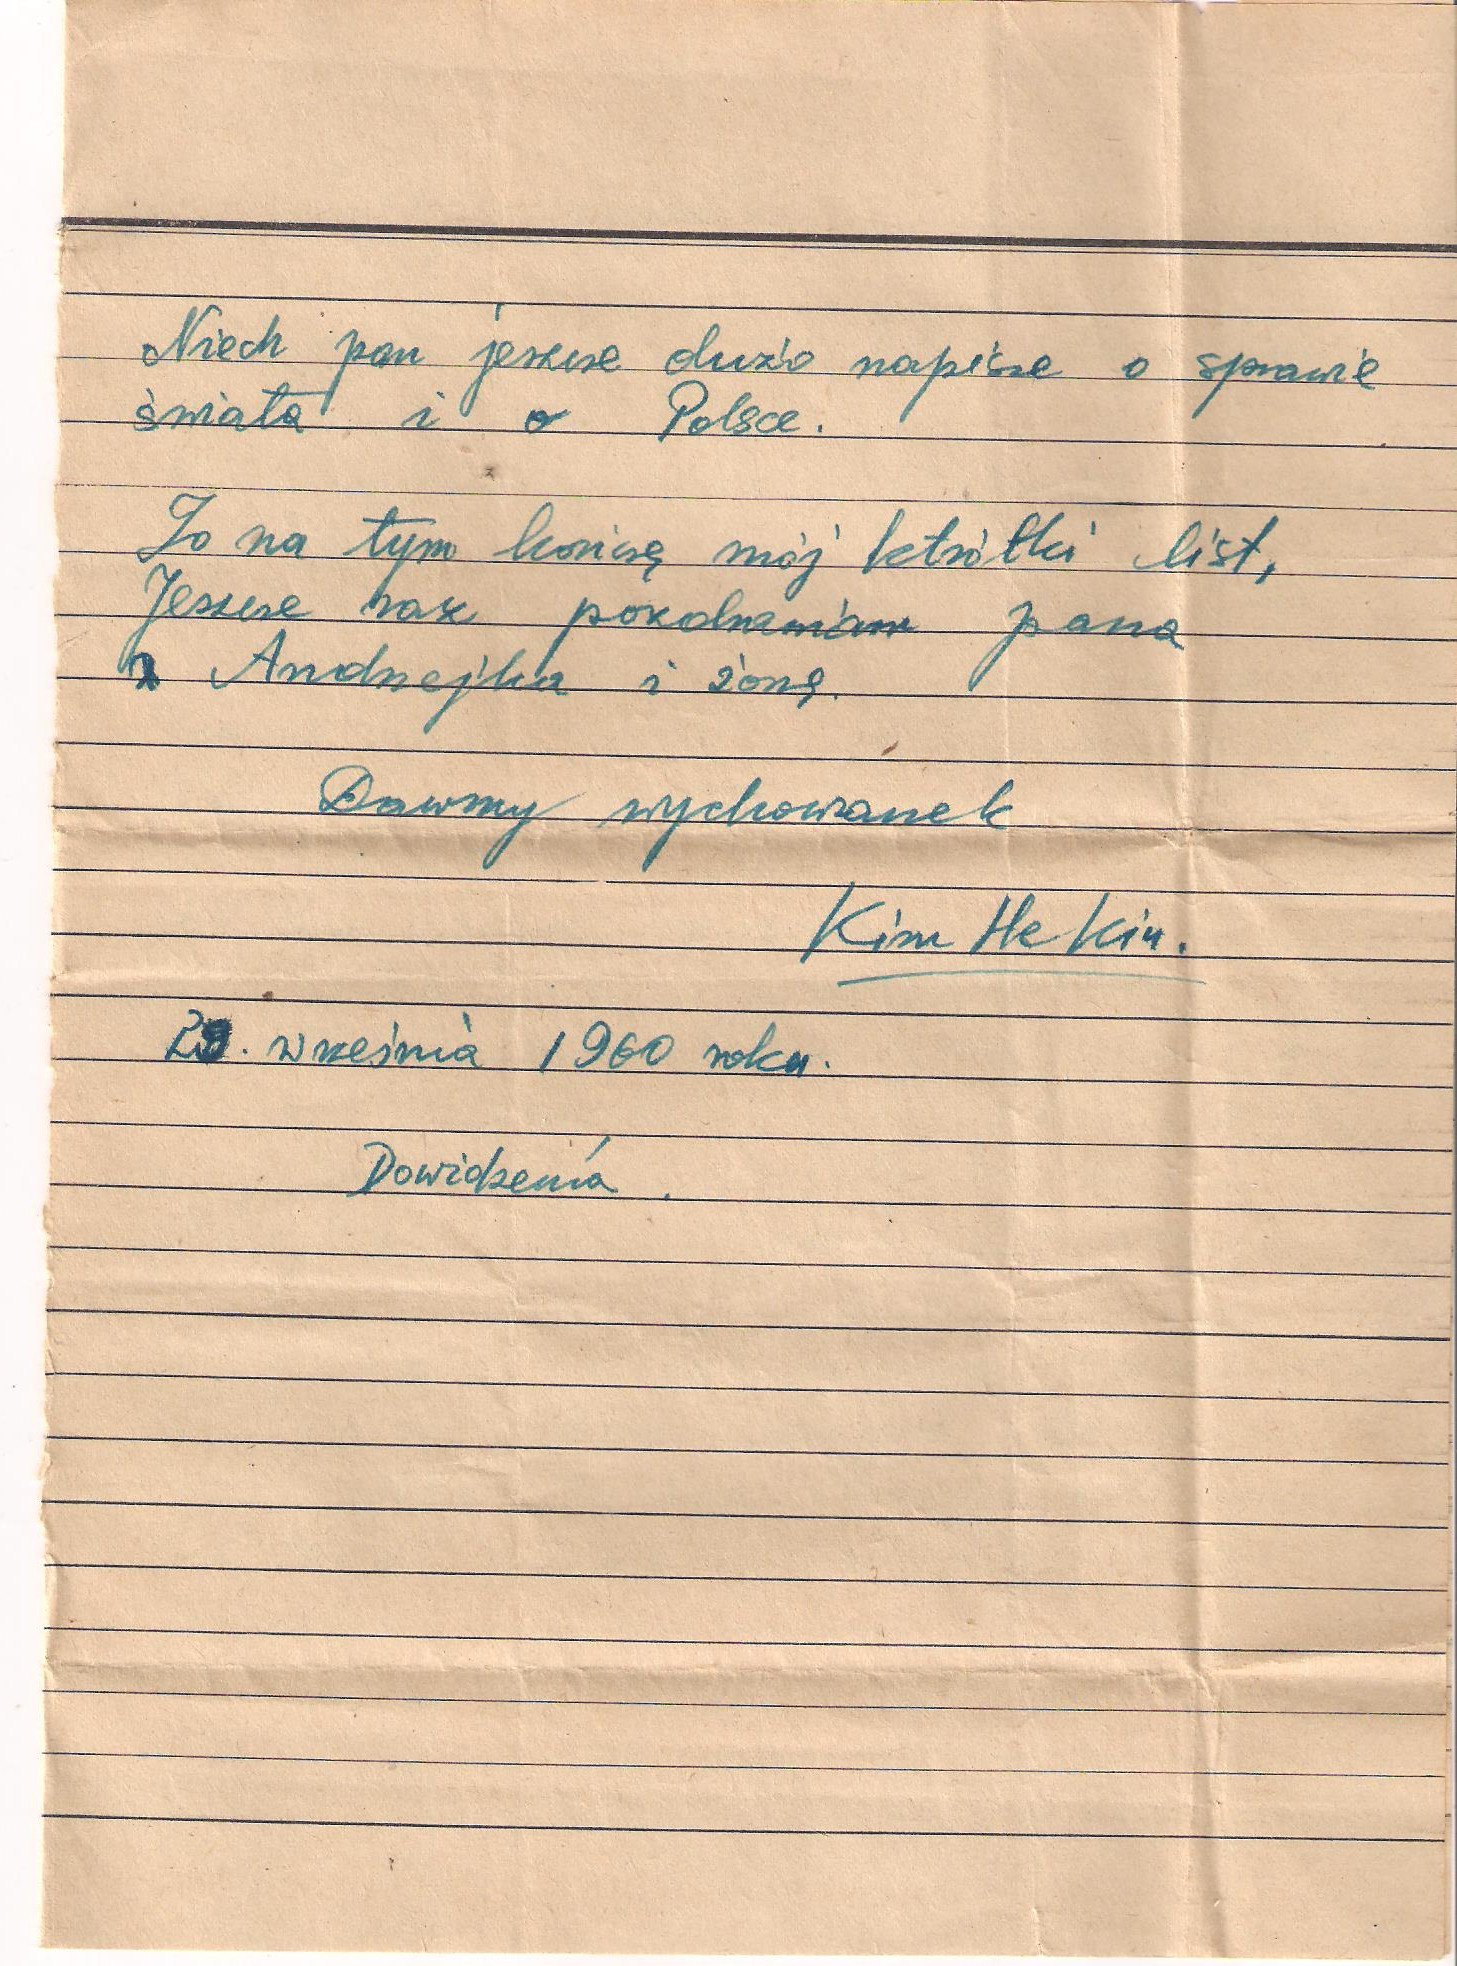 Niech pan jeszcze dużo napisze o sprawie
świata i o Polsce.
To na tym kończę mój któtki list,
Jeszcze raz pozdrawiam pana
Andrzejka i żonę.
Dawny wychowanek
Kim He Kin.
29. września 1960 roku.
Dowidzenia.